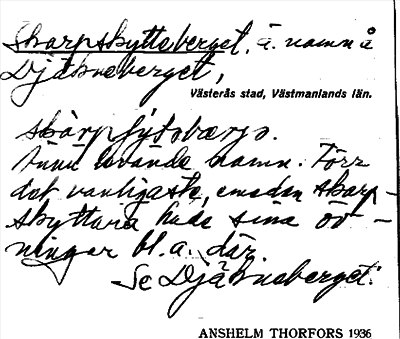 Skarpskytteberget, ä. namn å
Djäkneberget,
Västerås stad, Västmanlands län.
skàrpʃytəbærjə.
Ännu levande namn. Förr
det vanligaste, emedan skarp-
skyttarna hade sina öv-
ningar bl.a. där.
Se Djäkneberget.
ANSHELM THORFORS 1936